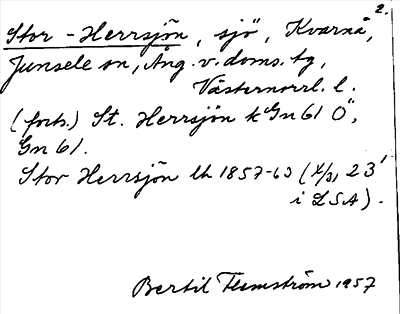 2.
Stor-Herrsjön, sjö, Kvarnå,
Junsele sn, Ång. v. doms. tg,
Västernorrl. l.
(forts.) St. Herrsjön k Gn 61 Ö,
Gn 61.
Stor Herrsjön lh 1857-63 (X/31, 23
i LSA).
Bertil Flemström 1957